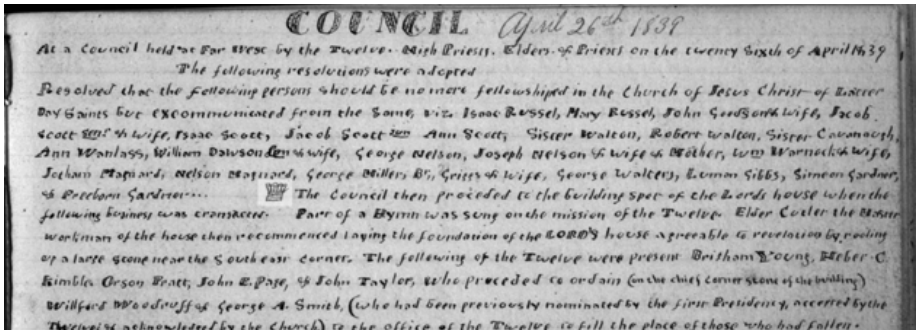 COUNCIL April 26th 1839
At a Council held at Far West by the Twelve. High Priests. Elders. & Priests on the twenty Sixth of April 1839
The following resolutions were adopted
Resolved that the following persons should be no more fellowshiped in the Church of Jesus Christ of Latter
Day Saints but excommunicated from the Same, viz. Isaac Russel, Mary Russel, John Goodson & wife, Jacob
Scott Senr. & wife, Isaac Scott, Jacob Scott Jun Ann Scott, Sister Walton, Robert Walton, Sister Cavanaugh,
Ann Wanlass, William Dawson & wife, George Nelson, Joseph Nelson & wife & Mother, Wm Warnock & wife,
Jotham Maynard, Nelson Maynard, George Miller Br, Griggs & wife, George Walters, Luman Gibbs, Simeon Gardner,
& Freeborn Gardner... The Council then proceded to the building spot of the Lords house when the
following business was transacted. Part of a Hymn was sung on the mission of the Twelve. Elder Cutler the Master
workman of the house then recommenced laying the foundation of the LORD'S house agreeable to revelation by rooling
up a large stone near the South east corner. The following of the Twelve were present Brigham Young, Heber C.
Kimble, Orson Pratt, John E. Page, & John Taylor, who proceded to ordain (on the chief corner stone of the building)
Wilford Woodruff & George A. Smith, (who had been previously nominated by the first Presidency, accepted by the
Twelve & acknowledged by the Church) to the office of the Twelve to fill the place of those who had fallen.